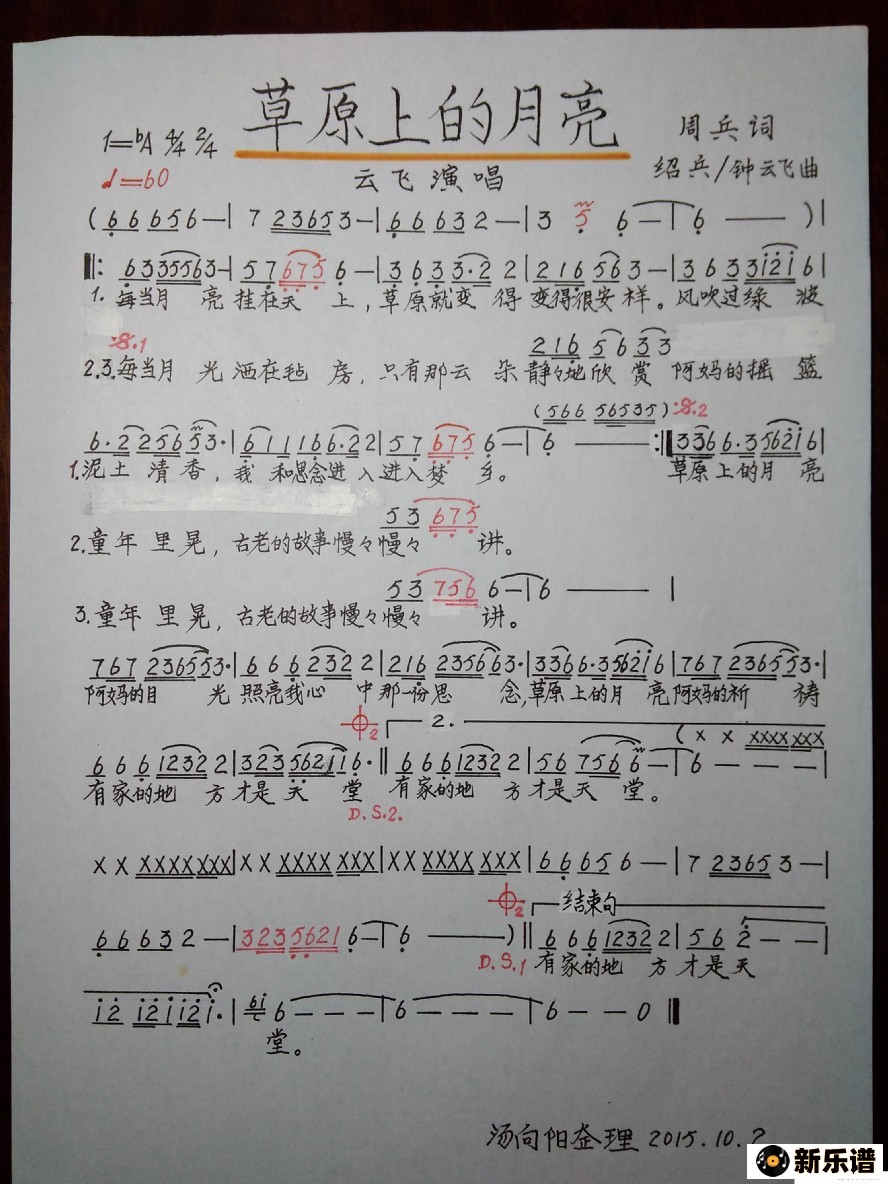 草原上的月亮
1=♭A 4/4 2/4
周兵词
♩=60
云飞演唱
绍兵/钟云飞曲
(6 6 6 5 6 —| 7 2 3 6 5 3 —| 6 6 6 3 2 —| 3 5 6 —| 6 —— )|
‖: 6 3 3 5 5 6 3 —| 5 7 6 7 5 6 —| 3 6 3 3·2 2| 2 1 6 5 6 3 —| 3 6 3 3 1 2 1 6|
1. 每当月 亮 挂在天 上, 草原就变 得 变得很安 样。 风吹过绿 波
:S.1
2 1 6 5 6 3 3
2.3.每当月 光 洒在毡 房, 只有那云 朵 静々地欣 赏 阿妈的摇 篮
(5 6 6 5 6 5 3 5) :S.2
6·2 2 5 6 5 3·| 6 1 1 1 6 6·2 2| 5 7 6 7 5 6 —| 6 —— :‖ 3 3 6 6·3 5 6 2 1 6|
1.泥土 清香, 我 和思念进 入进入梦 乡。 草原上的月 亮
5 3 6 7 5
2.童年 里晃, 古老的故事慢々慢々 讲。
5 3 7 5 6 6 —| 6 —— |
3.童年 里晃, 古老的故事慢々慢々 讲。
7 6 7 2 3 6 5 5 3·| 6 6 6 2 3 2 2| 2 1 6 2 3 5 6 6 3·| 3 3 6 6·3 5 6 2 1 6| 7 6 7 2 3 6 5 5 3·|
阿妈的目 光 照亮我心 中那一份思 念,草原上的月 亮阿妈的祈 祷
2 2. (X X XXXX XXX
6 6 6 1 2 3 2 2| 3 2 3 5 6 2 1 1 6·‖ 6 6 6 1 2 3 2 2| 5 6 7 5 6 6 —| 6 — — —|
有家的地 方才是天 堂 有家的地 方才是天 堂。
D.S.2.
X X XXXX XXX| X X XXXX XXX| X X XXXX XXX| 6 6 6 5 6 —| 7 2 3 6 5 3 —|
2 结束句
6 6 6 3 2 —| 3 2 3 5 6 2 1 6 —| 6 —— )‖ 6 6 6 1 2 3 2 2| 5 6 2 — —|
D.S.1 有家的地 方才是天
1 2 1 2 1 1 2 1·| 6 1 6 — — —| 6 — — —| 6 — — 0 ‖
堂。
汤向阳整理 2015.10.2
新乐谱